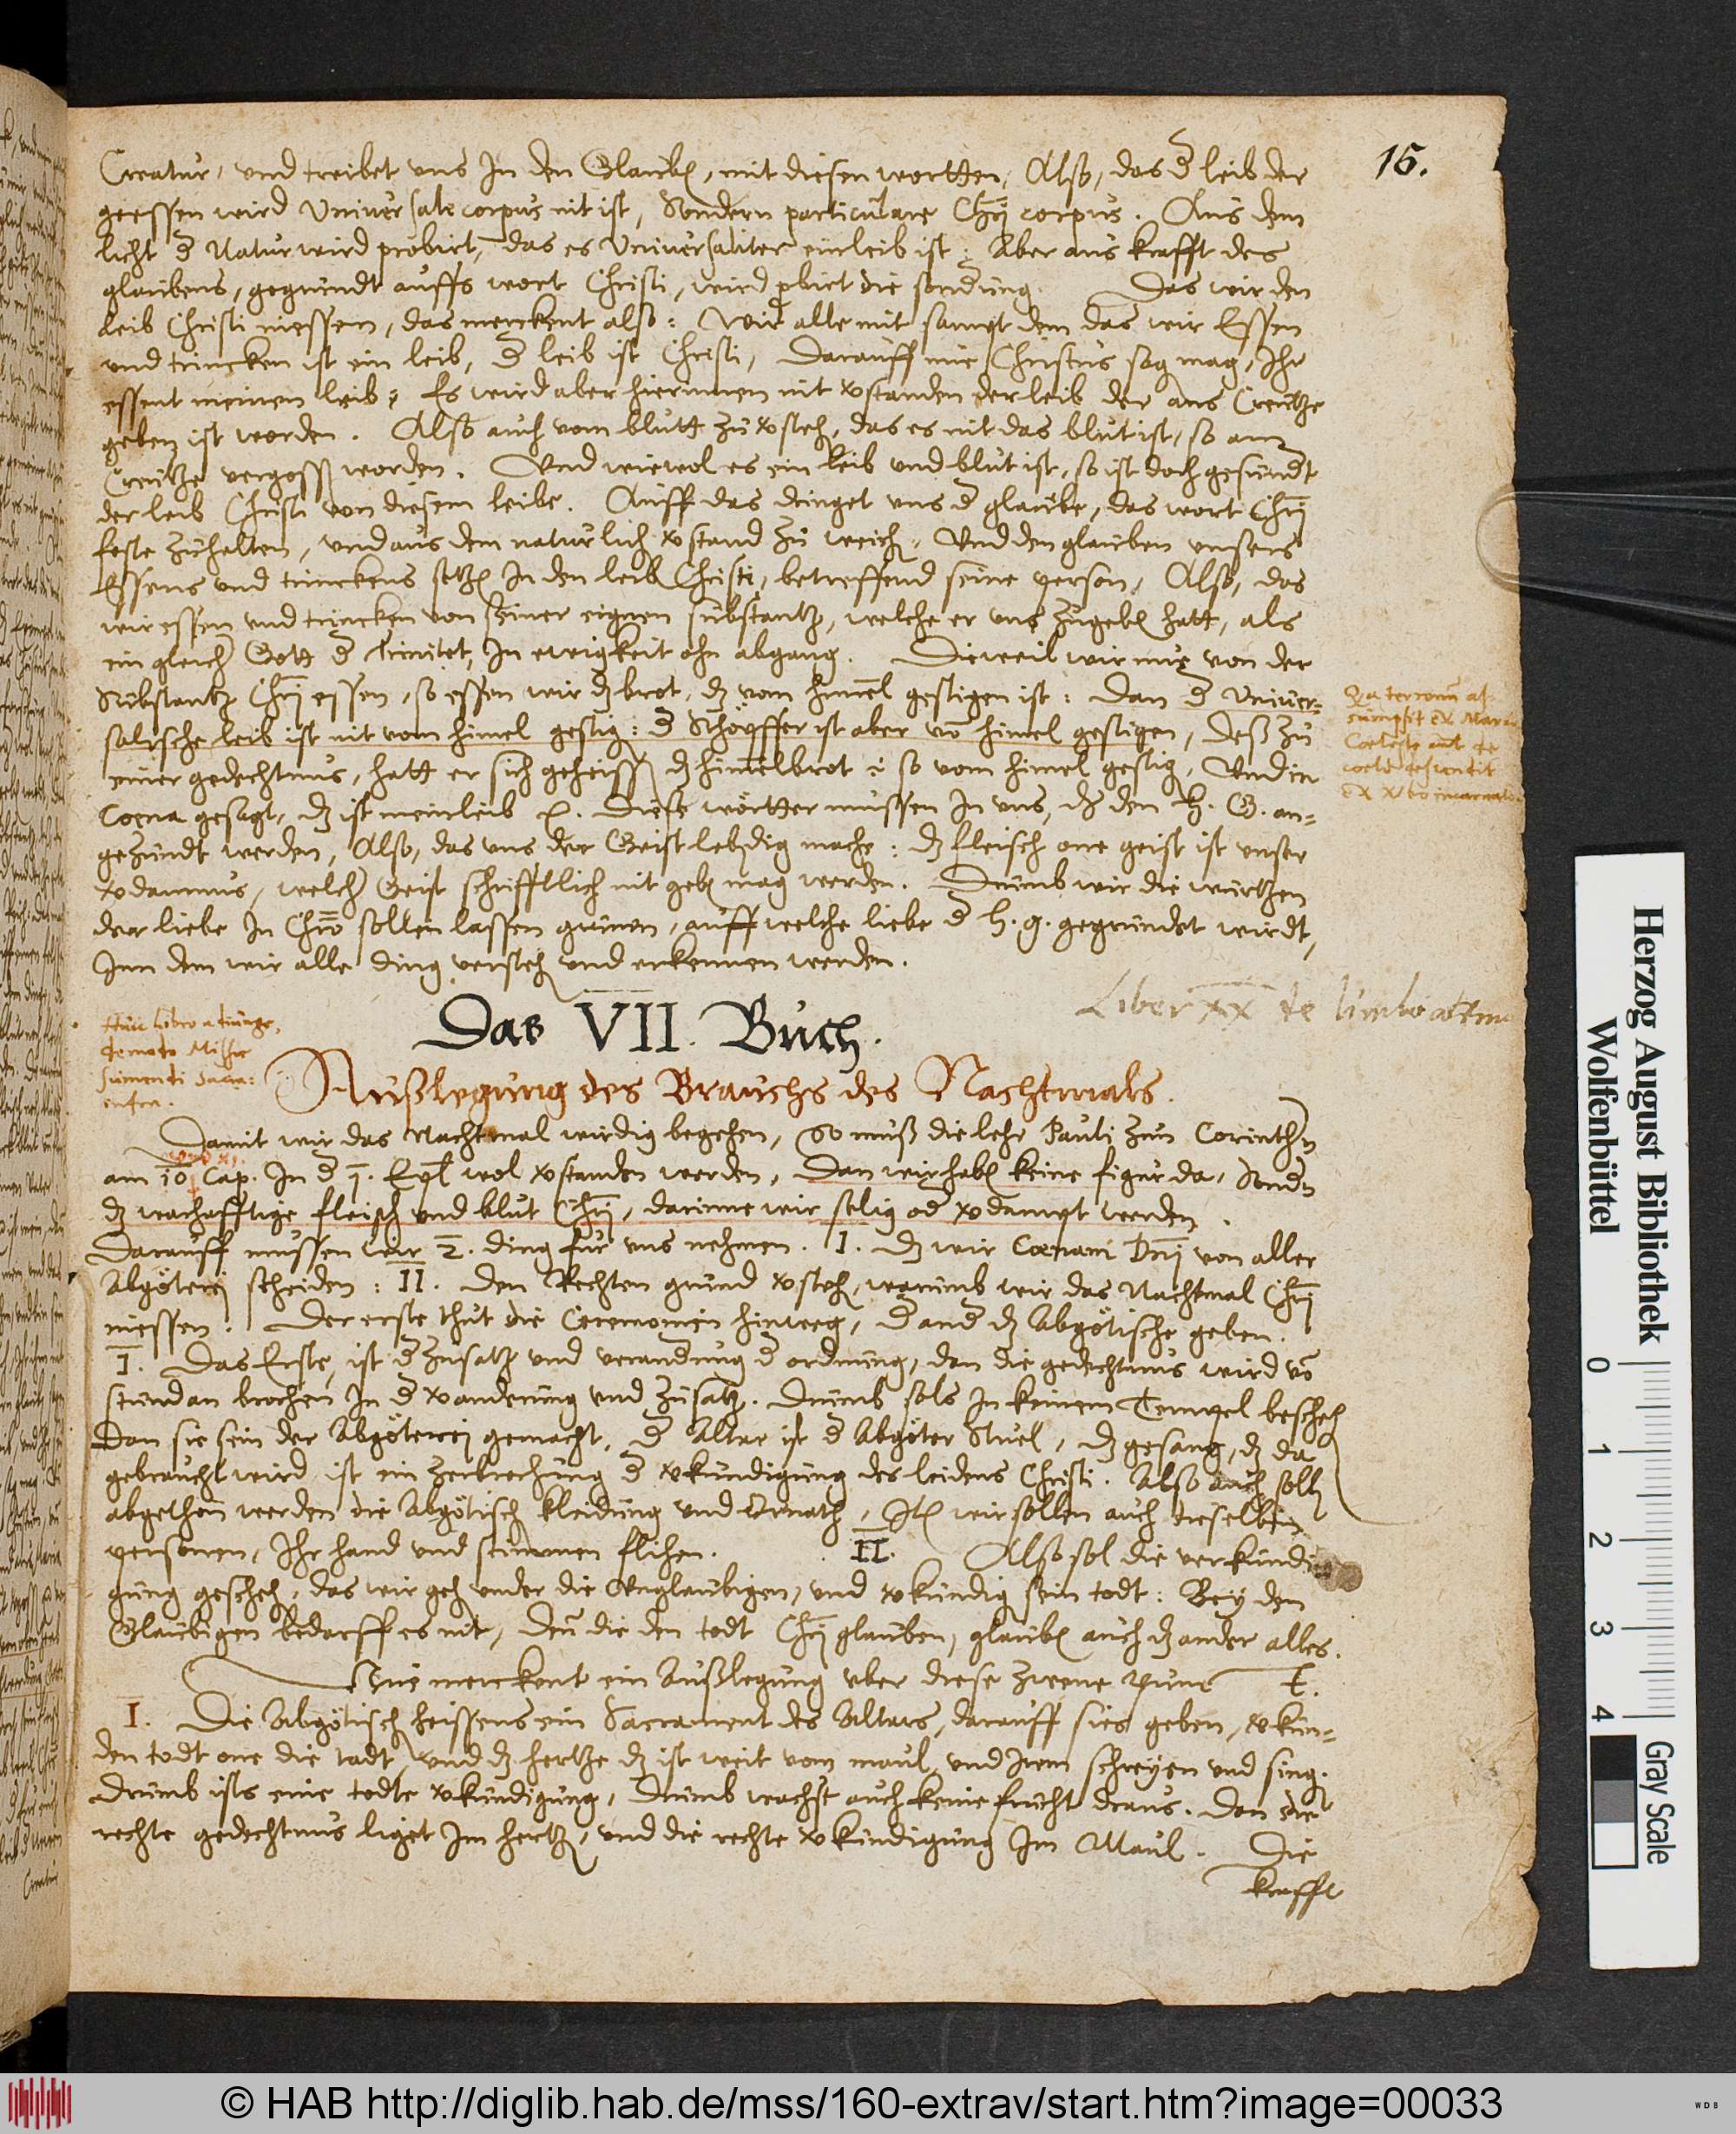 15.
Creatur, und treibet uns In den Glaubē, mit diesen wortten, Also, das dˀ leib der
geessen wird Universale corpus nit ist, Sondern particulare Chrī corpus. Aus dem
licht dˀ Natur wird probirt, das es Universaliter ein leib ist: Aber aus krafft des
glaubens, gegründt auffs wort Christi, wird pbirt die sondrung. Das wir den
leib Christi niessen, das merckent also: Wir alle mit sampt dem das wir Essen
und trincken ist ein leib, dˀ leib ist Christi, Darauff nur Christus sag mag, Ihr
essent meinen leib: Es wird aber hierinnen nit vˀstanden der leib der ans Creutze
geben ist worden. Also auch vom blutt zu vˀsteh, das es nit das blut ist, so am
Creutze vergoss worden. Und wiewol es ein leib und blut ist, so ist doch gesündt
der leib Christi von diesem leibe. Auff das dringet uns dˀ glaube, das wort Chrī
feste zuhalten, und aus dem naturlich vˀstand zu weich. Und den glauben unsers
Essens und trinckens setzē In den leib Christi, betreffend seine person, Also, das
wir essen und trincken von seiner eignen substantz, welche er uns zugebē hatt, als
ein gleichˀ Gott dˀ Trinitet, In ewigkeit ohn abgang. Dieweil wir nuͤ von der
Substantz Chrī essen, so essen wir dz brot, dz vom himel gestigen ist: Dan dˀ Univer=
salische leib ist nit vom himel gestig: dˀ Schöpffer ist aber vō himel gestigen, Deß zu
einer gedechtnus, hatt er sich geheiss dz himelbrot so vom himel gestig, Und in
Coena gesagt, dz ist mein leib etc. Diese wörtter mussen In uns, dˀ den H. G. an=
gezündt werden, Also, das uns der Geist lebdig mache: dz fleisch one geist ist unser
vˀdamnus, welchˀ Geist schrifftlich nit gebē mag werden. Drumb wir die wurtzen
der liebe In Chrō sollen lassen grunen, auff welche liebe dˀ h. g. gegründet wirdt,
Inn dem wir alle ding versteh und erkennen werden.
Liber XX de limbo aeterno
Das VII. Buch.
Außlegung des Brauchs des Nachtmals.
Damit wir das Nachtmal wirdig begehen, So muß die lehr Pauli zun Corinthˀn
am 10 Cap. In dˀ 1. Epl wol vˀstanden werden, Dan wir habē keine figur da, Sondˀn
dz warhafftige fleisch und blut Chrī, darinne wir selig odˀ vˀdampt werden.
Darauff mussen wir 2. ding fur uns nehmen. I. dz wir Coenam Dnī von aller
Abgöterej scheiden: II. Den Rechten grund vˀsteh, warumb wir das Nachtmal Chrī
niessen. Der erste thut die Ceremonien hinweg, dˀ andˀ dz Abgötische geben.
I. Das Erste, ist dˀ zusatz und verandrung dˀ ordnung, dan die gedechtnus wird vō
stund an brochen In dˀ vˀanderung und zusatz. Drumb sols In keinem Tempel bescheh
Dan sie sein der Abgöterej gemacht, dˀ Altar ist dˀ Abgöter Stuel, dz gesang, dz da
gebraucht wird ist ein zerbrechung dˀ vˀkündigung des leidens Christi. Also auch soll
abgethan werden die Abgötisch kleidung und Ornath, Itē wir sollen auch dieselben
personen, Ihr hand und stimmen flihen. II. Also sol die verkündi
gung gescheh, das wir geh under die Onglaubigen, und vˀkündig sein todt: Bey den
Glaubigen bedarff es nit, Deñ die den todt Chrī glauben, glaubē auch dz ander alles.
Nuͤ merckent ein Außlegung uber diese zweene punct
I. Die Abgötisch heissens ein Sacrament des Altars, darauff sies geben, vˀkün=
den todt one die tadt, und dz hertze dz ist weit vom maul, und Irem schreyen und sing.
Drumb ists eine todte vˀkündigung, Drumb wachst auch keine frucht draus. Dan die
rechte gedechtnus liget Im hertz, und die rechte vˀkündigung Im Maul. Die
krafft
Herzog August Bibliothek
Wolfenbüttel
0 1 2 3 4
Gray Scale
© HAB http://diglib.hab.de/mss/160-extrav/start.htm?image=00033
WDB